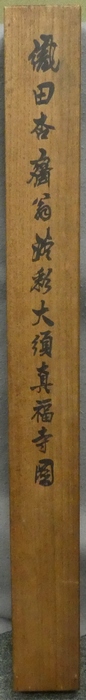 織田杏齋翁淡彩大須真福寺圖